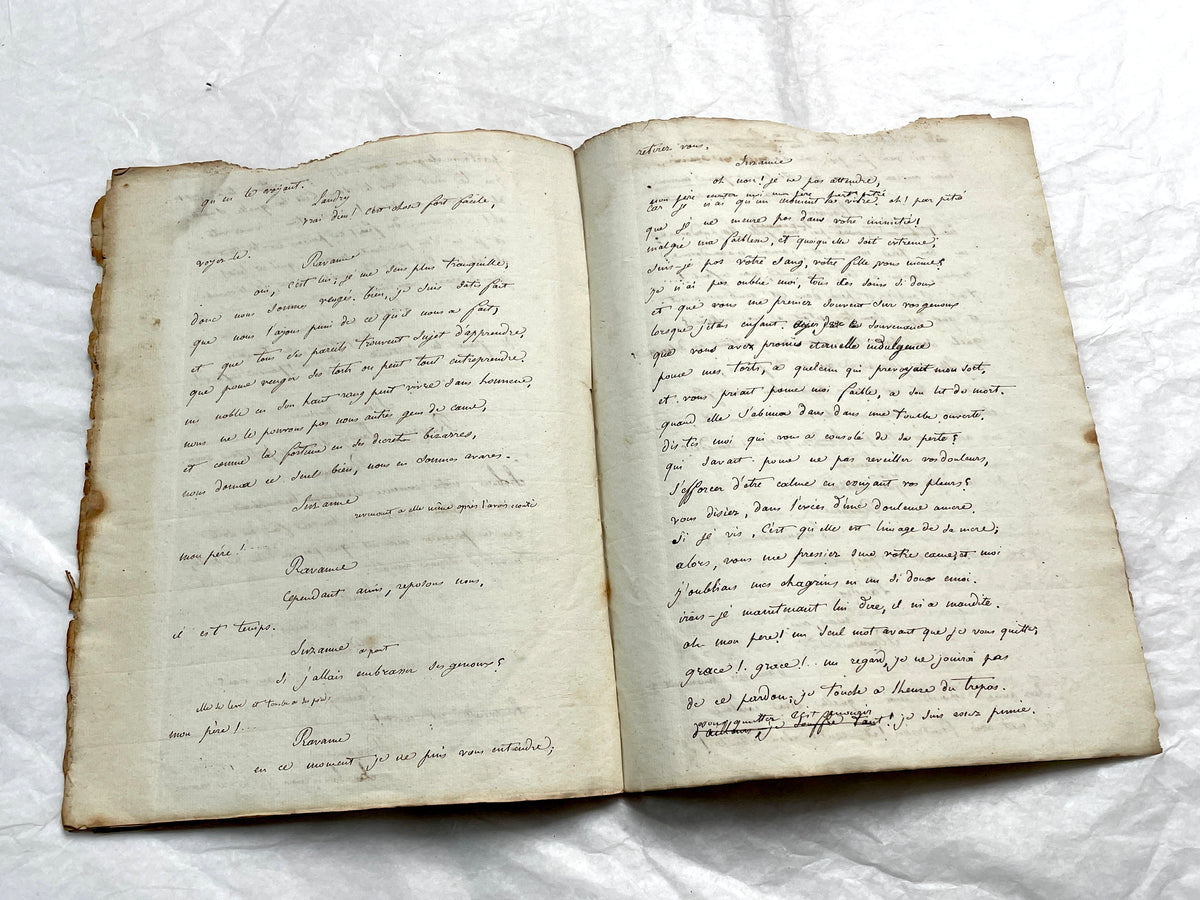 qu'en le voyant.
Landry
vrai dieu! c'est chose fort facile,
voyez le.
Ravanne
oui, c'est lui; je me sens plus tranquille,
donc nous sommes vengés. bien, je suis satisfait
que nous l'ayons puni de ce qu'il nous a fait,
et que tous ses pareils trouvent sujet d'apprendre,
que pour venger ses torts on peut tout entreprendre.
un noble en son haut rang peut vivre sans honneur,
nous ne le pouvons pas nous autres gens de cœur,
et comme la fortune en ses décrets bizarres,
nous donna ce seul bien, nous en sommes avares.
Suzanne
revenant a elle même après l'avoir écouté
mon père!...
Ravanne
Cependant amis, reposons nous,
il est temps.
Suzanne a part
si j'allais embrasser ses genoux?
elle se lève et tombe a ses pieds
mon père!...
Ravanne
en ce moment je ne puis vous entendre;
retirez vous.
Suzanne
oh non! je ne pas attendre,
mon père
car je n'ai qu'un moment a vivre. oh! par pitié
que je ne meure pas dans votre inimitié!
malgré ma faiblesse, et quoiqu'elle soit extreme,
suis-je pas votre sang, votre fille vous même?
je n'ai pas oublié moi, tous ces soins si doux
et que vous me preniez souvent sur vos genoux
lorsque j'etais enfant souvenance
que vous avez promis eternelle indulgence
pour mes torts, a quelqu'un qui prevoyait mon sort,
et vous priait pour moi faible, a son lit de mort.
quand elle s'abima dans dans une tombe ouverte,
dis tes moi qui vous a consolé de sa perte?
qui savait pour ne pas reveiller vos douleurs,
s'efforcer d'être calme en essuyant vos pleurs?
vous disiez, dans l'excès d'une douleur amere.
si je vis, c'est qu'elle est l'image de sa mere;
alors, vous me pressiez sur votre cœur, et moi
j'oubliais mes chagrins en un si doux emoi.
irais-je maintenant lui dire, il m'a maudite.
oh mon pere! un seul mot avant que je vous quitte;
grace! grace!... un regard, je ne jouirai pas
de ce pardon; je touche a l'heure du trepas.
vous quitter c'est mourir
d'ailleurs, je souffre tant! je suis assez punie.